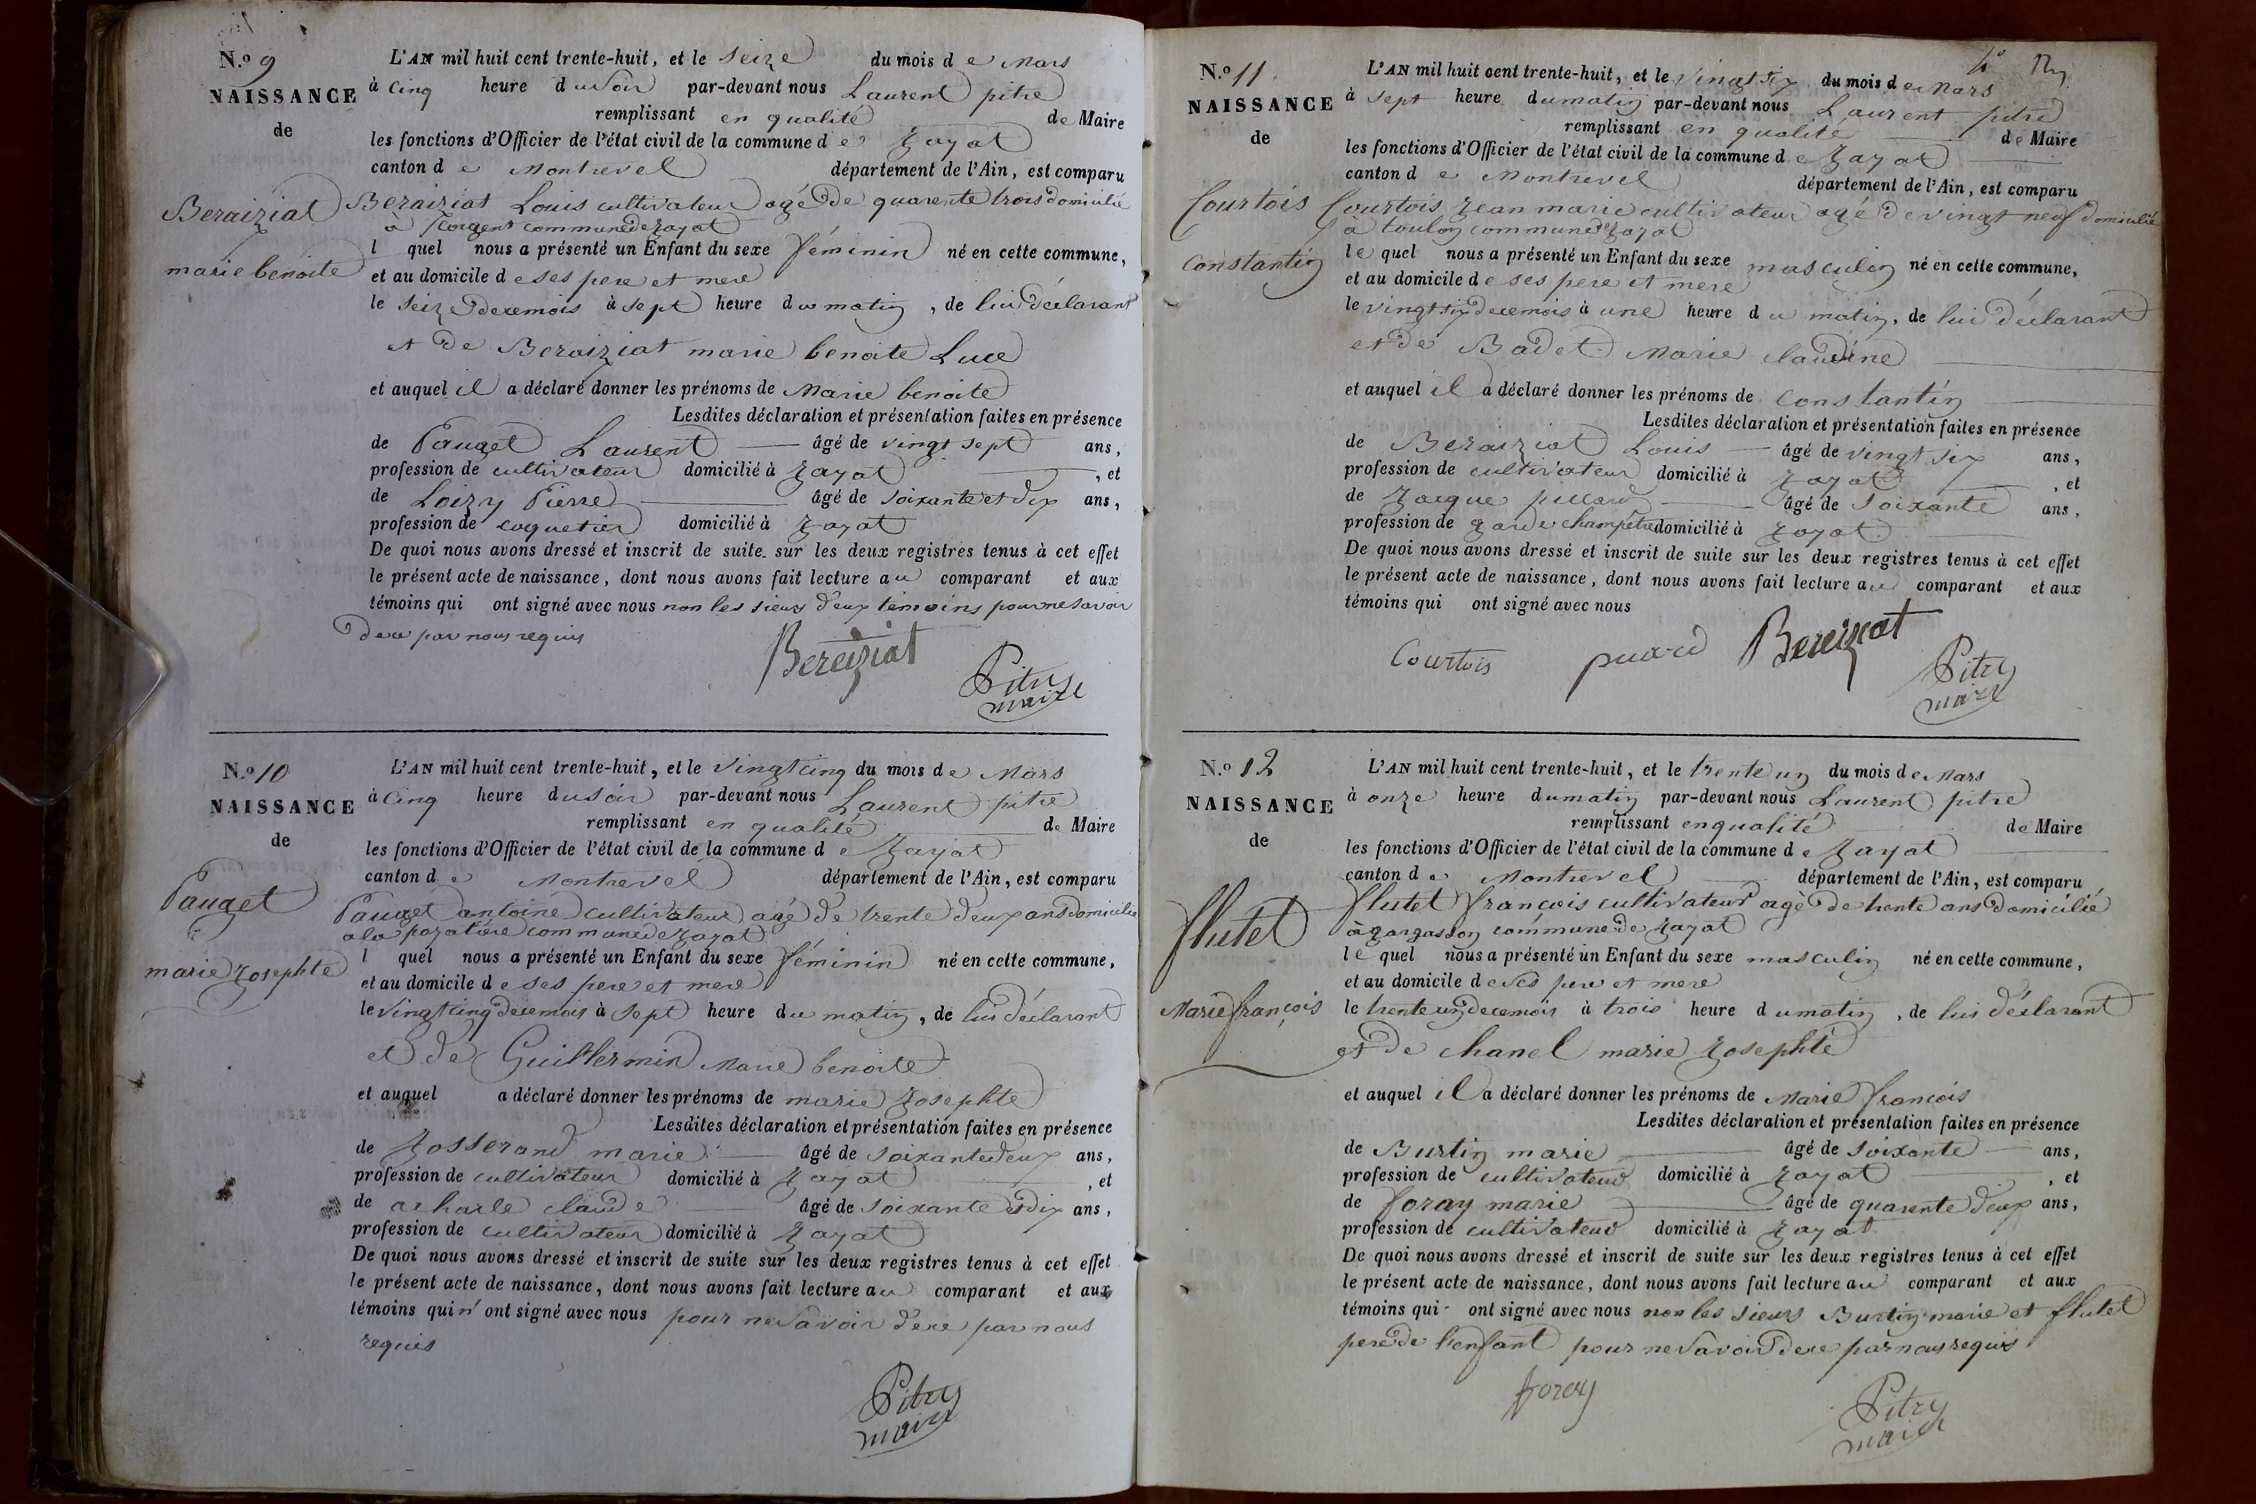 N.o 9
NAISSANCE
de
Beraiziat
marie benoite
L'AN mil huit cent trente-huit, et le seize du mois d e Mars
à cinq heure du soir par-devant nous Laurent pitre
remplissant en qualité de Maire
les fonctions d'Officier de l'état civil de la commune d e Jayat
canton d e Montrevel département de l'Ain, est comparu
Beraiziat Louis cultivateur agé de quarente trois domicilié
à commune de Jayat
l quel nous a présenté un Enfant du sexe féminin né en cette commune,
et au domicile d e ses pere et mere
le seize decemois à sept heure du matin, de lui déclarant
et de Beraiziat marie benoite Luce
et auquel il a déclaré donner les prénoms de Marie benoite
Lesdites déclaration et présentation faites en présence
de Pauget Laurent âgé de vingt sept ans,
profession de cultivateur domicilié à Jayat, et
de Loizy Pierre âgé de soixante et dix ans,
profession de coquetier domicilié à Jayat
De quoi nous avons dressé et inscrit de suite sur les deux registres tenus à cet effet
le présent acte de naissance, dont nous avons fait lecture au comparant et aux
témoins qui ont signé avec nous non les sieurs deux témoins pour ne savoir
dece par nous requis
Bereiziat
Pitre
maire
N.o 10
NAISSANCE
de
Pauget
marie Josephte
L'AN mil huit cent trente-huit, et le vingt cinq du mois d e Mars
à cinq heure du soir par-devant nous Laurent pitre
remplissant en qualité de Maire
les fonctions d'Officier de l'état civil de la commune d e Jayat
canton d e Montrevel département de l'Ain, est comparu
Pauget antoine cultivateur agé de trente deux ans domicilié
a la commune de Jayat
l quel nous a présenté un Enfant du sexe féminin né en cette commune,
et au domicile d e ses pere et mere
le vingt cinq decemois à sept heure du matin, de lui déclarant
et de Guillermin Marie benoite
et auquel a déclaré donner les prénoms de marie Josephte
Lesdites déclaration et présentation faites en présence
de Josserand marie âgé de soixante deux ans,
profession de cultivateur domicilié à Jayat, et
de acharle claude âgé de soixante et dix ans,
profession de cultivateur domicilié à Jayat
De quoi nous avons dressé et inscrit de suite sur les deux registres tenus à cet effet
le présent acte de naissance, dont nous avons fait lecture au comparant et aux
témoins qui n'ont signé avec nous pour ne savoir dece par nous
requis
Pitre
maire
N.o 11
NAISSANCE
de
Courtois
Constantin
L'AN mil huit cent trente-huit, et le vingt six du mois d e Mars
à sept heure du matin par-devant nous Laurent pitre
remplissant en qualité de Maire
les fonctions d'Officier de l'état civil de la commune d e Jayat
canton d e Montrevel département de l'Ain, est comparu
Courtois Jean marie cultivateur agé de vingt neuf domicilié
à toulon commune de Jayat
le quel nous a présenté un Enfant du sexe masculin né en cette commune,
et au domicile d e ses pere et mere
le vingt six decemois à une heure du matin, de lui déclarant
et de Badet Marie claudine
et auquel il a déclaré donner les prénoms de Constantin
Lesdites déclaration et présentation faites en présence
de Beraiziat Louis âgé de vingt six ans,
profession de cultivateur domicilié à Jayat, et
de Jacque piccard âgé de soixante ans,
profession de garde champêtre domicilié à Jayat
De quoi nous avons dressé et inscrit de suite sur les deux registres tenus à cet effet
le présent acte de naissance, dont nous avons fait lecture au comparant et aux
témoins qui ont signé avec nous
Courtois Bereiziat
Pitre
maire
N.o 12
NAISSANCE
de
flutet
Marie françois
L'AN mil huit cent trente-huit, et le trente un du mois d e Mars
à onze heure du matin par-devant nous Laurent pitre
remplissant en qualité de Maire
les fonctions d'Officier de l'état civil de la commune d e Jayat
canton d e Montrevel département de l'Ain, est comparu
flutet françois cultivateur agé de trente ans domicilié
à gargasson commune de Jayat
le quel nous a présenté un Enfant du sexe masculin né en cette commune,
et au domicile d e ses pere et mere
le trente un decemois à trois heure du matin, de lui déclarant
et de chanel marie Josephte
et auquel il a déclaré donner les prénoms de Marie françois
Lesdites déclaration et présentation faites en présence
de Burtin marie âgé de soixante ans,
profession de cultivateur domicilié à Jayat, et
de foray marie âgé de quarente deux ans,
profession de cultivateur domicilié à Jayat
De quoi nous avons dressé et inscrit de suite sur les deux registres tenus à cet effet
le présent acte de naissance, dont nous avons fait lecture au comparant et aux
témoins qui ont signé avec nous non les sieurs Burtin marie et flutet
pere de l'enfant pour ne savoir dece par nous requis
foray
Pitre
maire